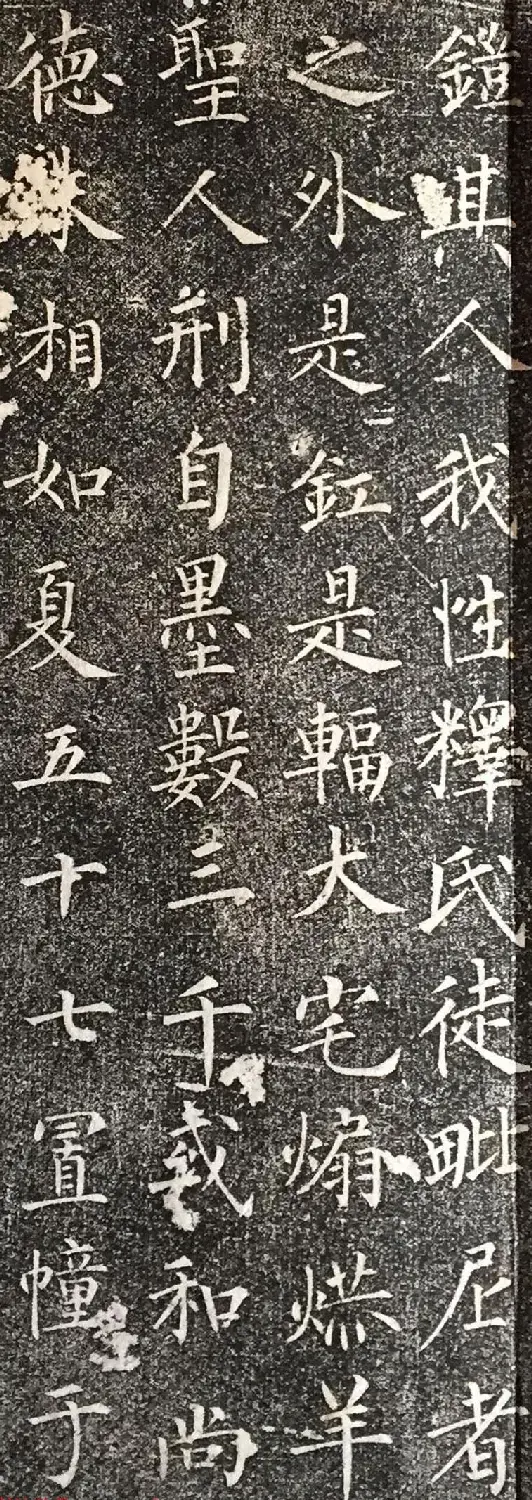 鎧其人我性釋氏徒毗尼者
之外是釭是輻大宅煽㷼羊
聖人刑自墨數三千戒和尚
德殊相如夏五十七置幢于